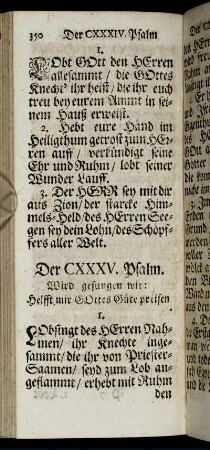 350 Der CXXXIV. Psalm
1.
LObt GOtt den HErren
allesammt / die GOttes
Knecht' ihr heist / die ihr euch
treu bey eurem Ammt in sei-
nem Hauß erweist.
2. Hebt eure Händ im
Heiligthum getrost zum HEr-
ren auff / verkündigt seine
Ehr und Ruhm / lobt seiner
Wunder Lauff.
3. Der HERR sey mit dir
aus Zion / der starcke Him-
mels-Held / des HErren See-
gen sey dein Lohn / des Schöpf-
fers aller Welt.
Der CXXXV. Psalm.
Wird gesungen wie:
Helfft mir GOttes Güte preisen
1.
LObsingt des HErren Nah-
men / ihr Knechte inge-
sammt / die ihr von Priester-
Saamen / seyd zum Lob an-
geflammt / erhebt mit Ruhm
den